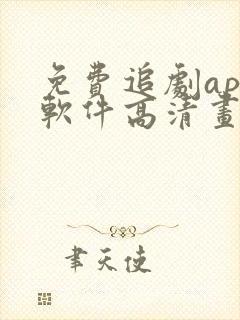 免費追劇ap
軟件高清畫
聿天使